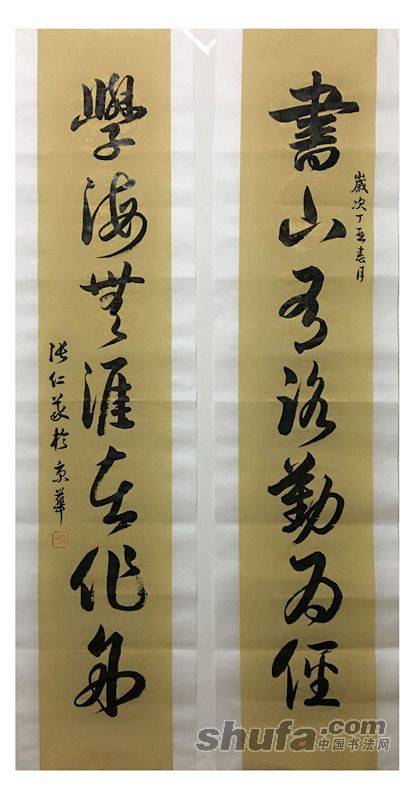 書山有路勤為徑
歲次丁亥春月
學海無涯苦作舟
張仁義於京華
shufa.com
中国书法网